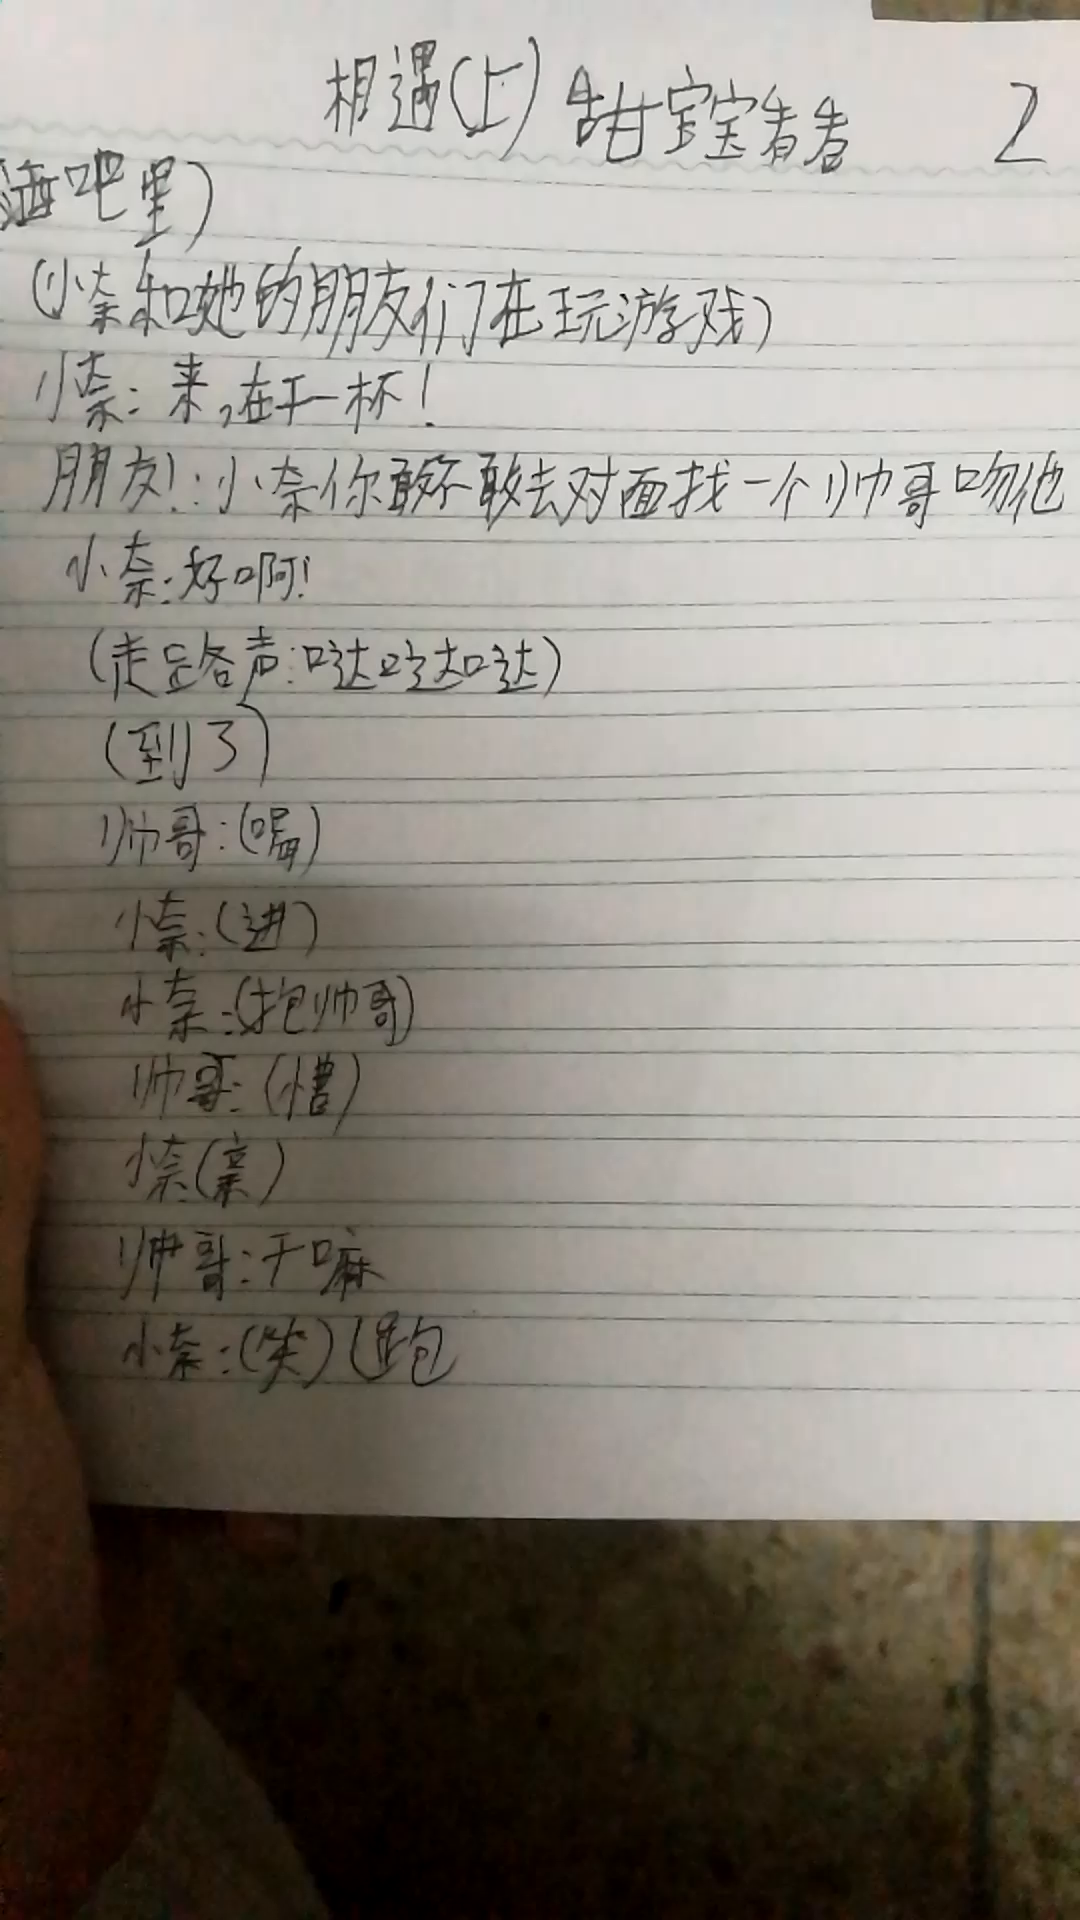 相遇(上) 甜宝宝看看 2
酒吧里)
(小奈和她的朋友们在玩游戏)
小奈:来,在干一杯!
朋友1:小奈你敢不敢去对面找一个帅哥吻他
小奈:好啊!
(走路声:哒哒哒)
(到了)
帅哥:()
小奈:(进)
小奈:(抱帅哥)
帅哥:(懵)
小奈(亲)
帅哥:干嘛
小奈:(笑)(跑